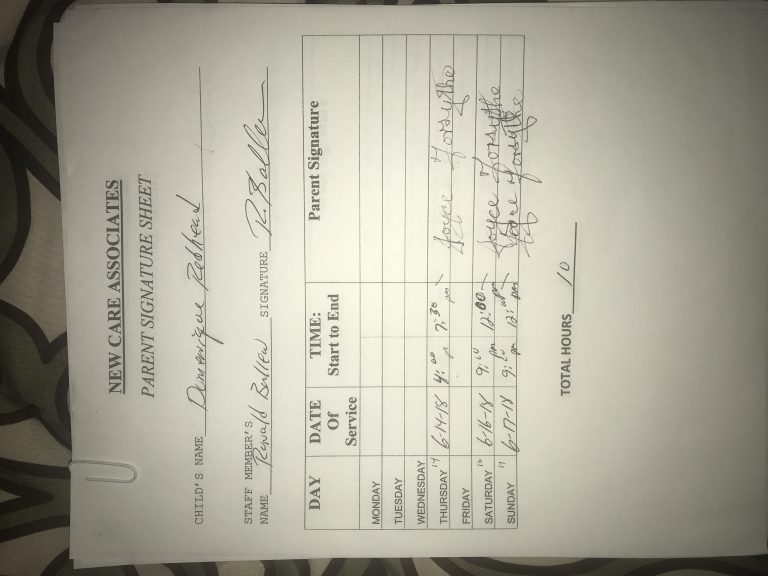 NEW CARE ASSOCIATES
PARENT SIGNATURE SHEET
CHILD'S NAME Dominique Redhead
STAFF MEMBER'S
NAME Ronald Bullen SIGNATURE R. Bullen
DAY DATE Of Service TIME: Start to End Parent Signature
MONDAY
TUESDAY
WEDNESDAY
THURSDAY 14 6-14-18 4:00 7:30 pm Joyce Forsythe
FRIDAY
SATURDAY 16 6-16-18 9:00 12:00 pm Joyce Forsythe
SUNDAY 17 6-17-18 9: 12: pm Forsythe
TOTAL HOURS 10